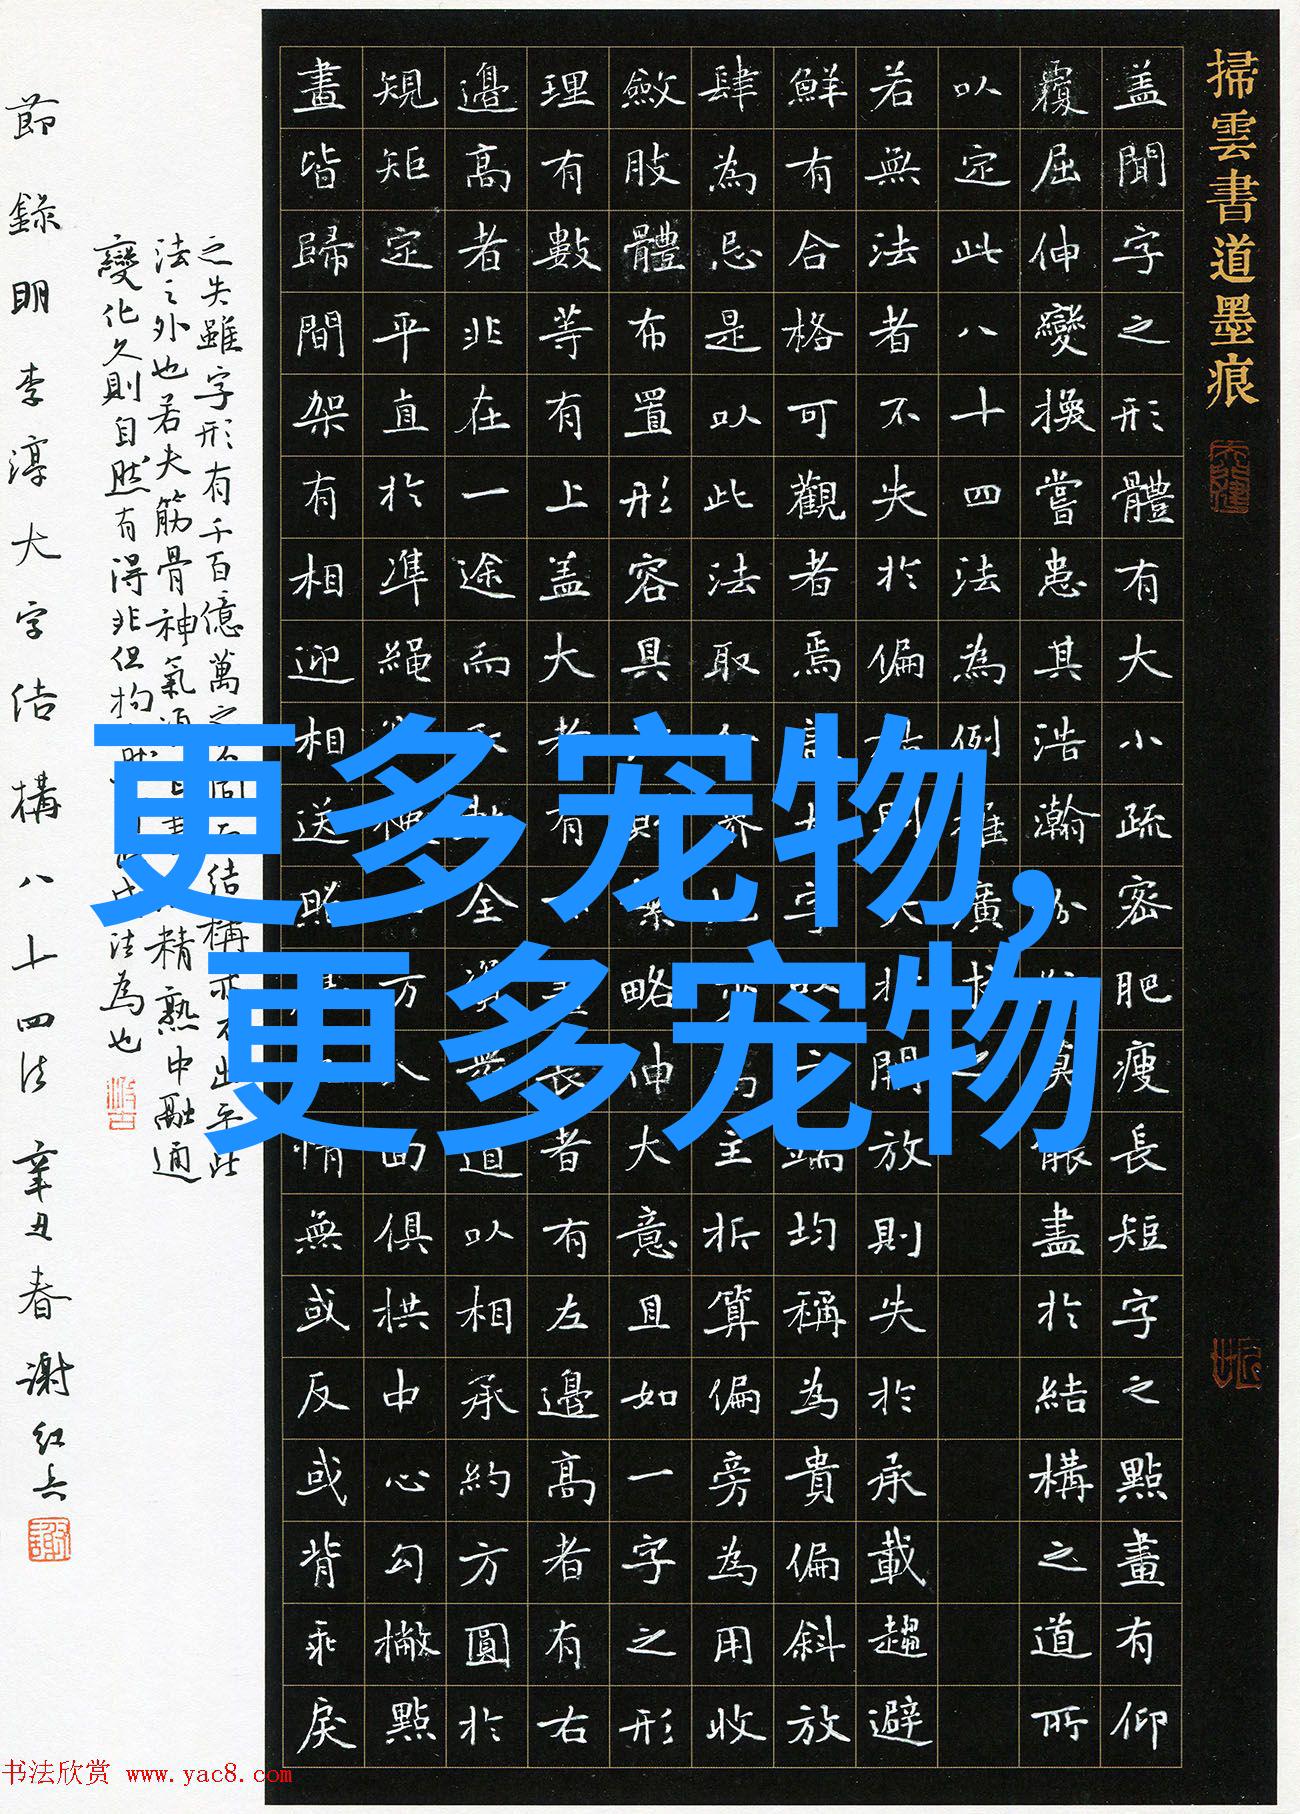 掃雲書道墨痕
盖聞字之形體有大小疏密肥瘦長短字之點畫有仰
覆屈伸變換嘗患其浩瀚紛 莫能盡於結構之道所
以定此八十四法為例推廣
若無法者不失於偏 則失於開放則失於承載趨避
鮮有合格可觀者焉 字 端均稱為貴偏斜放
肆為忌是以此法取 為主折算偏旁為用收
斂肢體布置形容具 則 略伸大意且如一字之形
理有數等有上盖大者有下畫長者有左邊高者有右
邊高者非在一途而 全 道以相承約方圓於
規矩定平直於準繩 方 面俱拱中心勾撇點
畫皆歸間架有相迎相送照 情無或反或背乖戾
之失雖字形有千百億萬之 結構亦不出乎此
法之外也若夫筋骨神氣 精熟中融通
變化久則自然有得非但拘 法為也
節錄明李淳大字结構八十四法 辛丑春謝红兵
更多宠物,
更多宠物
书法欣赏 www.yac8.com